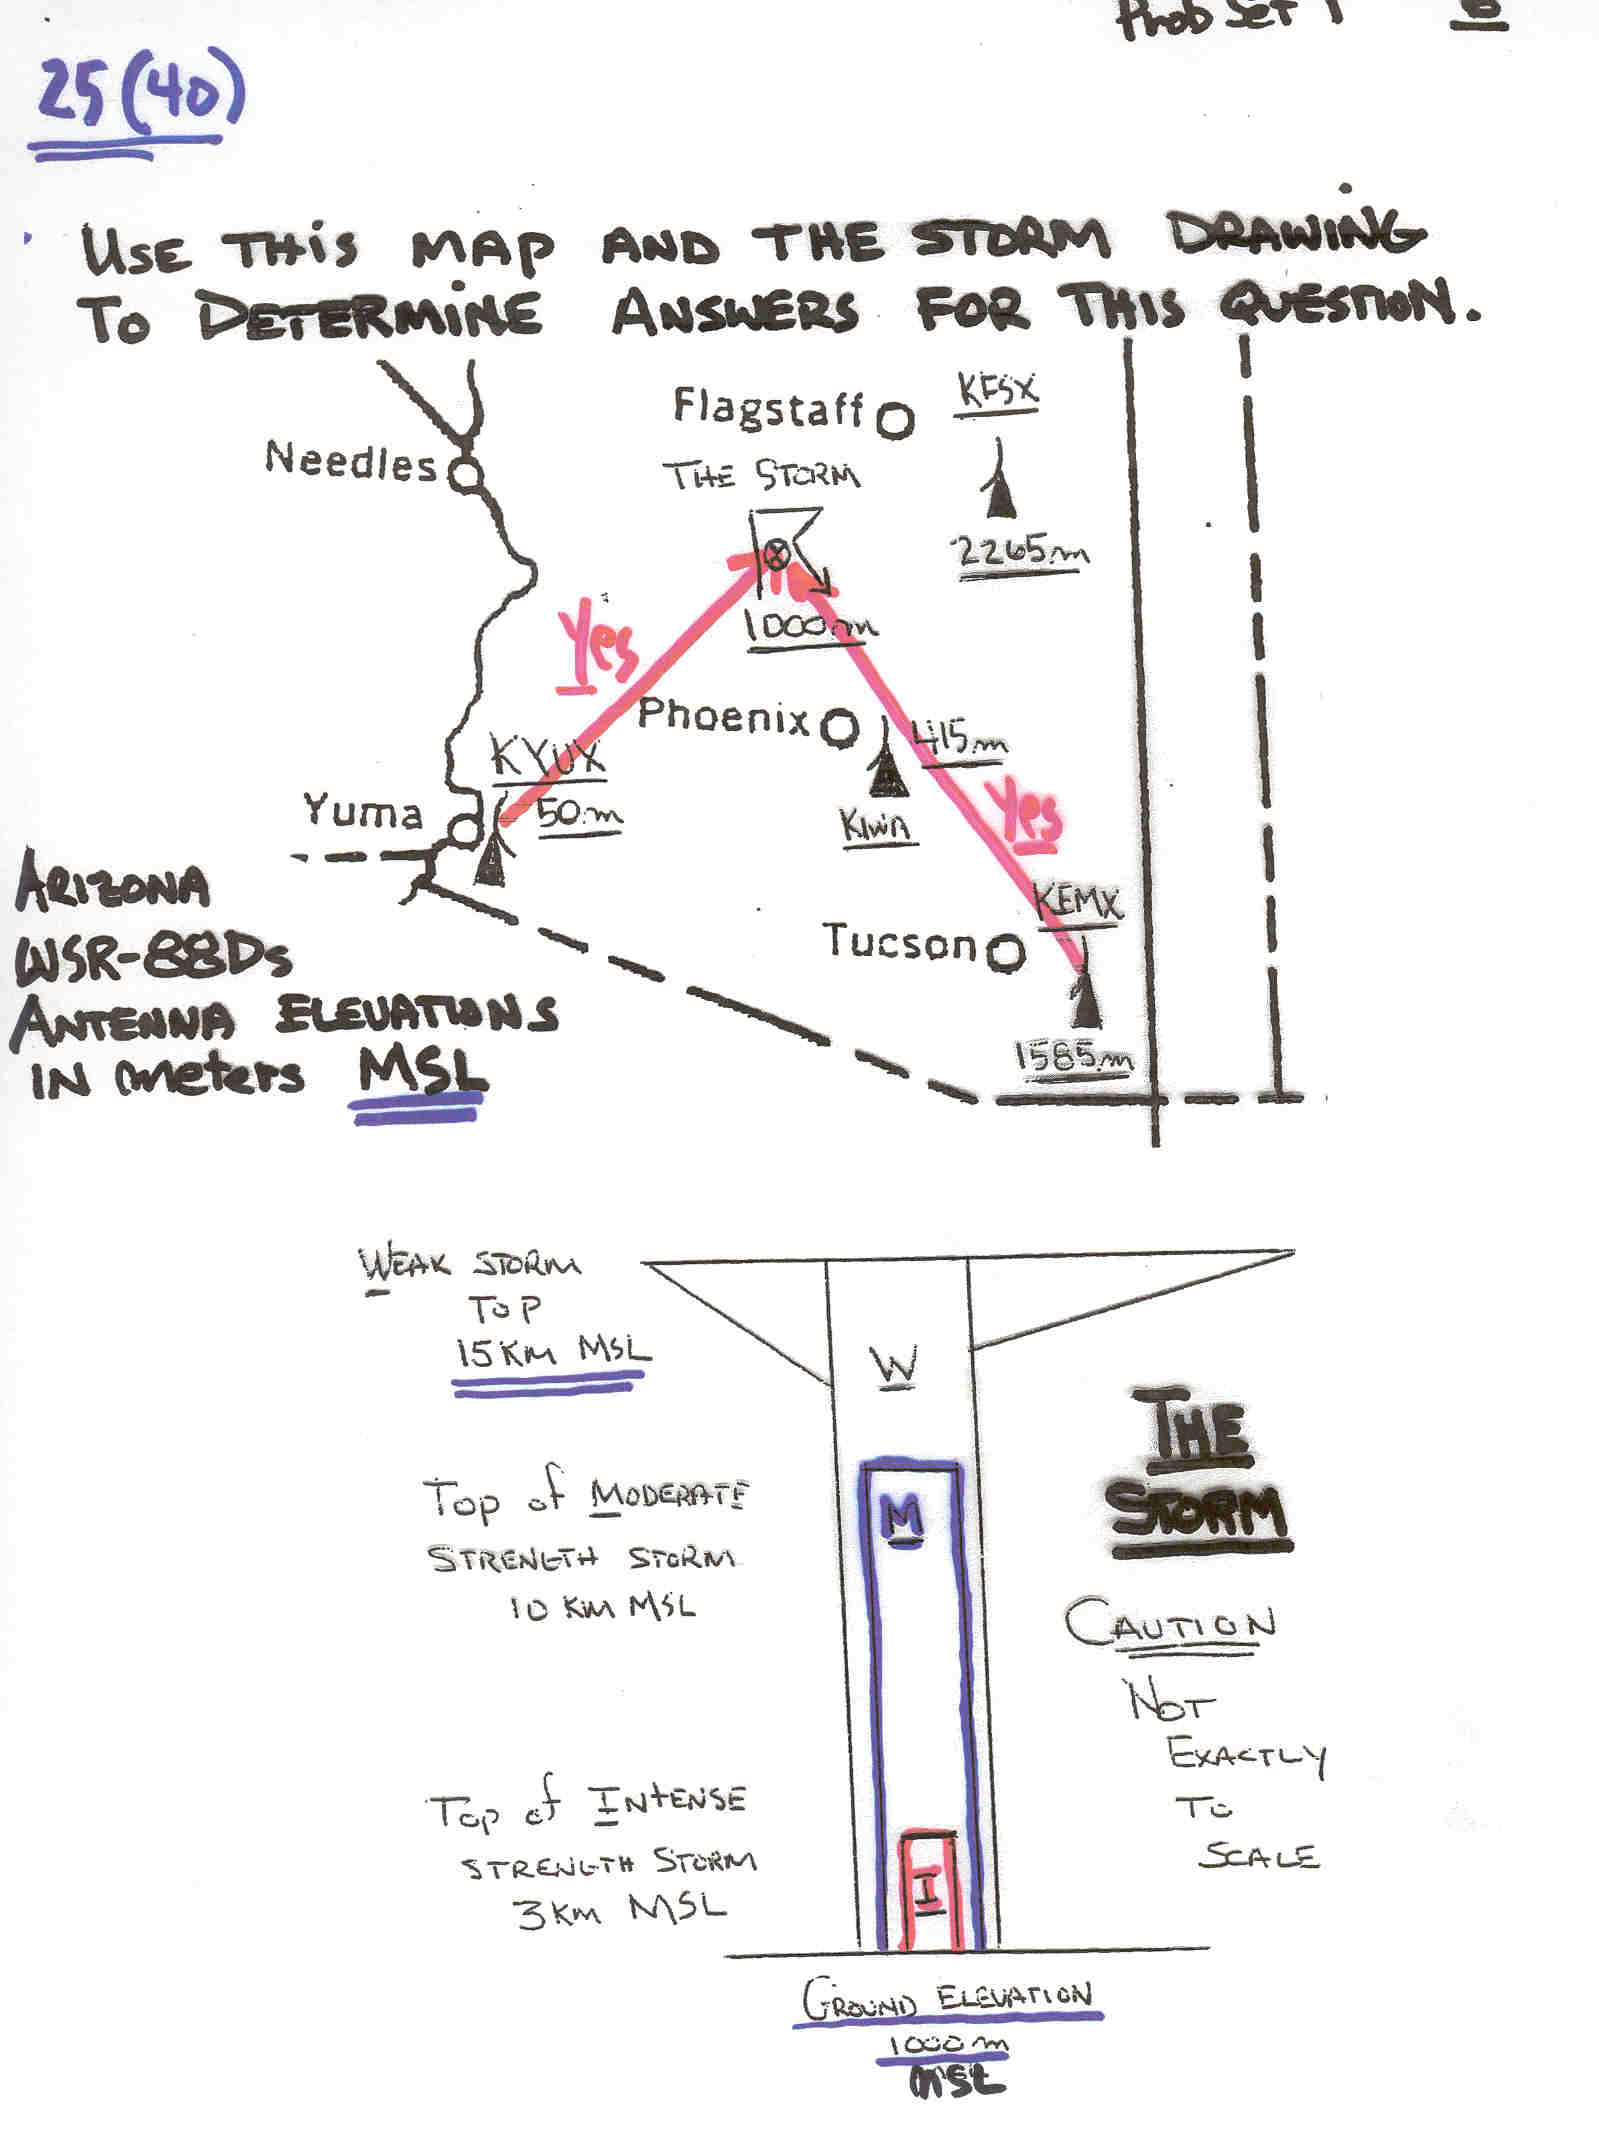 Prob Set 1 6
25 (40)
USE THIS MAP AND THE STORM DRAWING
TO DETERMINE ANSWERS FOR THIS QUESTION.
Flagstaff
KFSX
Needles
THE STORM
2265m
1000m
Yes
Phoenix
415m
KYUX
Yes
Yuma
50m
KIWA
ARIZONA
KEMX
WSR-88Ds
Tucson
ANTENNA ELEVATIONS
IN meters MSL
1585m
WEAK STORM
TOP
15 KM MSL
W
THE
STORM
Top of MODERATE
M
STRENGTH STORM
10 KM MSL
CAUTION
NOT
EXACTLY
TO
SCALE
Top of INTENSE
STRENGTH STORM
I
3 KM MSL
GROUND ELEVATION
1000 m
MSL